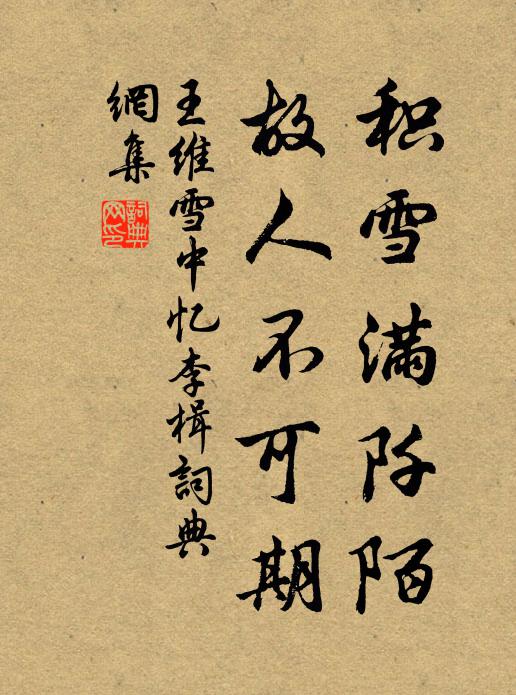 积雪满阡陌
故人不可期
王维雪中忆李楫詞典
網集
詞典网印